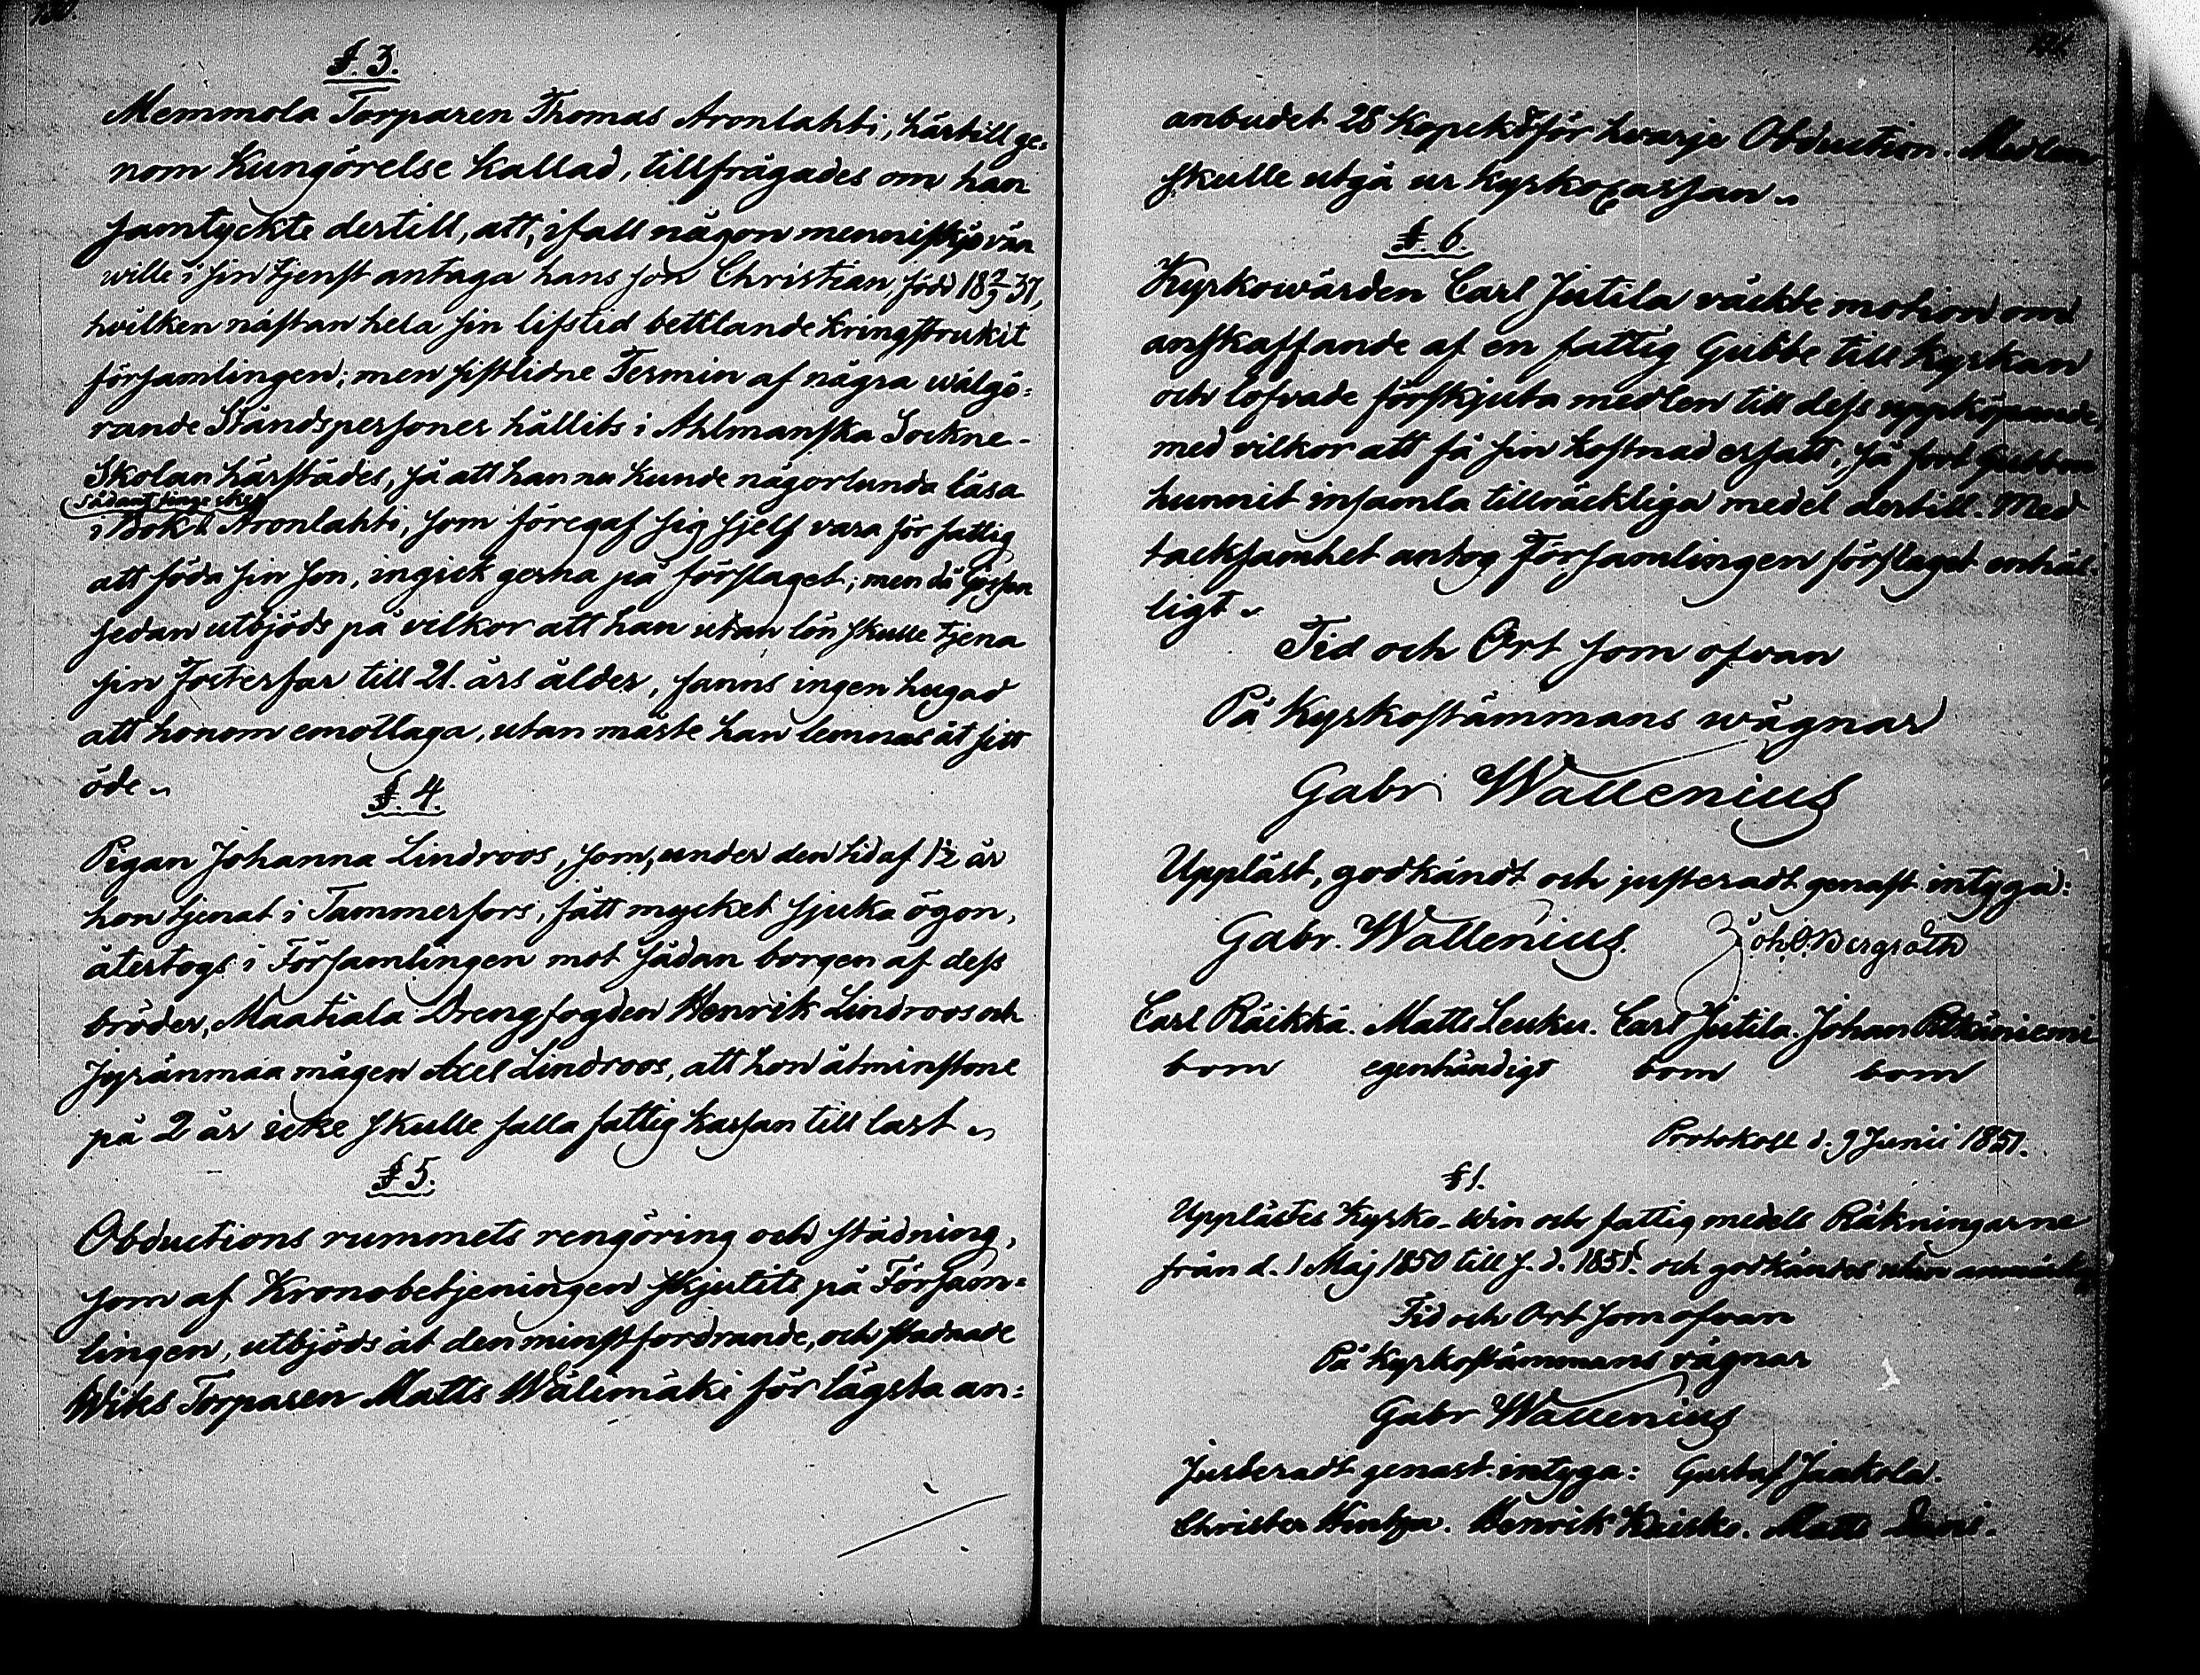 §. 3.
Memmola Torparen Thomas Aronlahti, härtill ge=
nom Kungörelse Kallad, tillfrågades om han
samtyckte dertill, att, ifall någon menniskjovän
wille i sin tjenst antaga hans son Christian, född 18 2/9 37,
hvilken nästan hela sin lifstid bettlande kringstrukit
församlingen; men sistlidne Termin af några wälgö=
rande Ståndspersoner hållits i Ahlmanska Sockne-
Skolan härstädes, så att han nu kunde någorlunda läsa
i Bok. Aronlahti, som föregaf sig sjelf vara för fattig
att föda sin son, ingick gerna på förslaget; men då Gossen
sedan utbjöds på vilkor att han utan lön skulle tjena
sin Fosterfar till 21. års ålder, fanns ingen hugad
att honom emottaga, utan måste han lemnas åt sitt
öde.
§. 4.
Pigan Johanna Lindroos, som, under den tid af 1½ år
hon tjenat i Tammerfors, fått mycket sjuka ögon,
återtogs i Församlingen mot sådan borgen af dess
bröder, Maatiala Drengfogden Henrik Lindroos och
Jyränmaa mågen Axel Lindroos, att hon åtminstone
på 2 år icke skulle falla fattig kassan till last.
§ 5.
Obductions rummets rengöring och städning,
som af Kronobetjeningen skjutits på Försam=
lingen, utbjöds åt den minstfordrande, och stadnade
Wiks Torparen Matts Wälimäki för lägsta an=
anbudet 25 Kopek för hvarje Obduction. Medlen
skulle utgå ur Kyrkocassan.
§. 6.
Kyrkowärden Carl Jutila väckte motion om
anskaffande af en fattig Gubbe till Kyrkan
och lofvade förskjuta medlen till dess uppköpande,
med vilkor att få sin kostnad ersatt, så fort Gubben
hunnit insamla tillräckliga medel dertill. Med
tacksamhet antog Församlingen förslaget enhäl=
ligt.
Tid och Ort som ofvan
På Kyrkostämmans wägnar
Gabr Wallenius
Uppläst, godkändt och justeradt genast intyga:
Gabr. Wallenius. Joh. O. Bergroth
Carl Räikkä. Matts Leuku. Carl Jutila. Johan
bom egenhändigt bom bom
Protokoll d. 9 Junii 1851.
§ 1.
Upplästes Kyrko- win och fattig medels Räkningarne
från d. 1 Maj 1850 till s. d. 1851. och godkändes utan
Tid och Ort som ofvan
På Kyrkostämmans vägnar
Gabr Wallenius
Justeradt genast intyga: Gustaf Jaakola.
Christer Henrik Matts